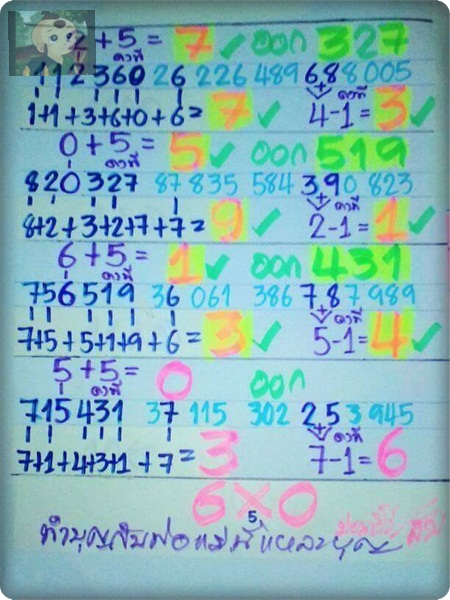 2 + 5 = 7 ✓ ออก 327
คงที่
112 360 26 226 489 688 005
1+1+3+6+0+6= 7 ✓ คงที่ 4-1= 3 ✓
0+5= 5 ✓ ออก 519
คงที่
820 327 87 835 584 390 823
8+2+3+2+7+7= 9 ✓ คงที่ 2-1= 1 ✓
6+5= 1 ✓ ออก 431
คงที่
756 519 36 061 386 787 989
7+5+5+1+9+6= 3 ✓ คงที่ 5-1= 4 ✓
5+5= 0 ออก
คงที่
715 431 37 115 302 253 945
7+1+4+3+1+7= 3 คงที่ 7-1= 6
6×0
5
ทำบุญกับพ่อแม่นี่แหละบุญ